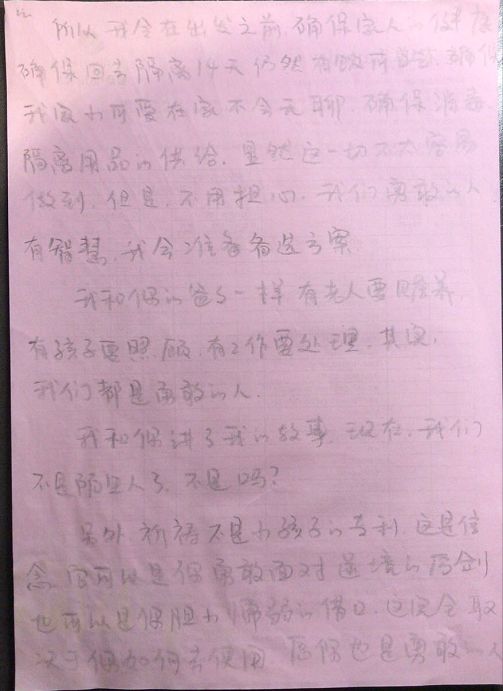 所以我会在出发之前,确保家人的健康
确保回去隔离14天仍然有
我家小 要在家不会无聊,确保消毒
隔离用品的供给。显然这一切不太容易
做到,但是,不用担心,我们勇敢的人
有智慧,我会准备备选方案
我和你的爸爸一样有老人要赡养,
有孩子要照顾,有工作要处理,其实,
我们都是勇敢的人.
我和你讲了我的故事,现在,我们
不是陌生人了,不是吗?
另外,祈祷不是小孩子的专利,这是信
念,它可以是你勇敢面对逆境的
也可以是你胆小懦弱的借口,这完全取
决于你如何去使用 愿你也是勇敢的人